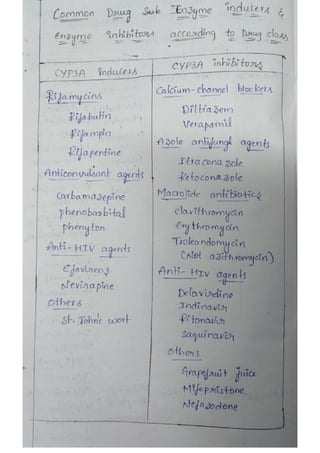 Common Drug Sub Enzyme inducers &
Enzyme Inhibitors according to Drug class
CYP3A Inducers
CYP3A inhibitors
Rifamycins
Rifabutin
Rifampin
Rifapentine
Anticonvulsant agents
Carbamazepine
phenobarbital
phenyton
Anti-HIV agents
Efavirenz
Nevirapine
Others
St. John's wort
Calcium-channel blockers
Diltiazem
Verapamil
Azole antifungl agents
Itraconazole
Ketoconazole
Macrolide antibiotics
Clarithromycin
Erythromycin
Troleandomycin
(Not azithromycin)
Anti-HIV agents
Delavirdine
Indinavir
Ritonavir
Saquinavir
Others
Grapefruit juice
Mifepristone
Nefazodone